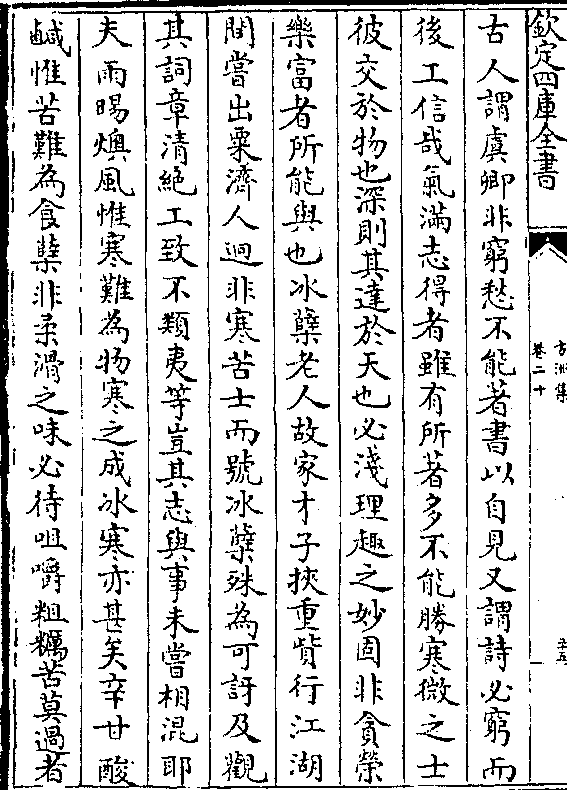 欽定四庫全書
方洲集
卷二十
古人謂虞卿非窮愁不能著書以自見又謂詩必窮而
後工信哉氣滿志得者雖有所著多不能勝寒微之士
彼交於物也深則其達於天也必淺理趣之妙固非貪榮
樂富者所能與也冰櫱老人故家才子挾重貲行江湖
間嘗出粟濟人迥非寒苦士而號冰櫱殊為可訝及觀
其詞章清絶工致不類夷等豈其志與事未嘗相混耶
夫雨暘燠風惟寒難為物寒之成冰寒亦甚矣辛甘酸
鹹惟苦難為食櫱非柔滑之味必待咀嚼粗糲苦莫過者